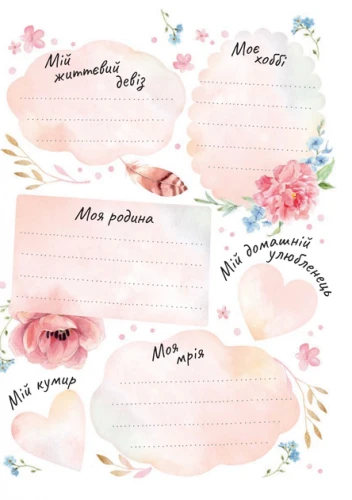 Мій
життєвий
девіз
Моє
хоббі
Моя родина
Мій домашній
улюбленець
Моя
мрія
Мій кумир